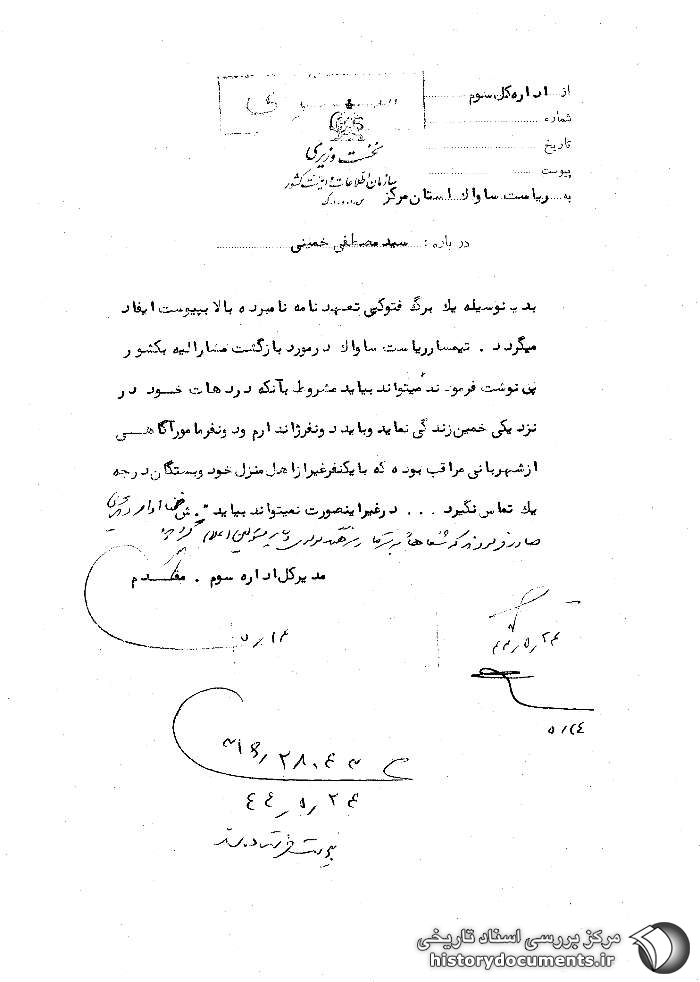 از اداره کل سوم
شماره
تاریخ
پیوست
نخست وزیری
سازمان اطلاعات و امنیت کشور
س.ا.و.ا.ک
به ریاست ساواک استان مرکز
درباره : سید مصطفی خمینی
بدینوسیله یک برگ فتوکپی تعهد نامه نامبرده بالا بپیوست ایفاد
میگردد . تیمسار ریاست ساواک در مورد بازگشت مشارالیه بکشور
پی نوشت فرمودند میتواند بیاید مشروط بآنکه در دهات خود در
نزدیکی خمین زندگی نماید و باید دو نفر ژاندارم و دو نفر مامور آگاهی
از شهربانی مراقب بوده که با یکنفر غیر از اهل منزل خود و بستگان درجه
یک تماس نگیرد ... در غیر اینصورت نمیتواند بیاید "
صادر فرمودند که شفاهاً
مدیر کل اداره سوم . مقدم
۵/۲۴
۴۴/۵/۲۴
۵/۲۴
۴۴/۵/۲۴
مرکز بررسی اسناد تاریخی
historydocuments.ir